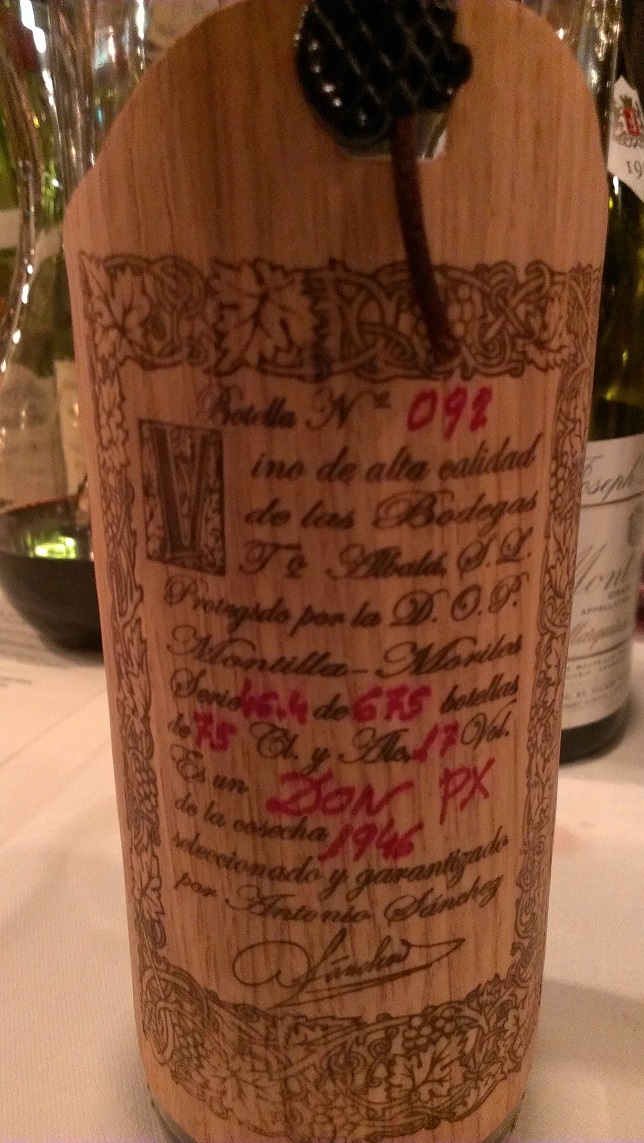 Botella Nº 092
Vino de alta calidad
de las Bodegas
Tº Albalá, S.L.
Protegido por la D.O.P.
Montilla-Moriles
Serie 46.4 de 675 botellas
de 75 Cl. y Alc. 17 Vol.
Es un DON PX
de la cosecha 1946
seleccionado y garantizado
por Antonio Sánchez
Sánchez
Joseph
Mont